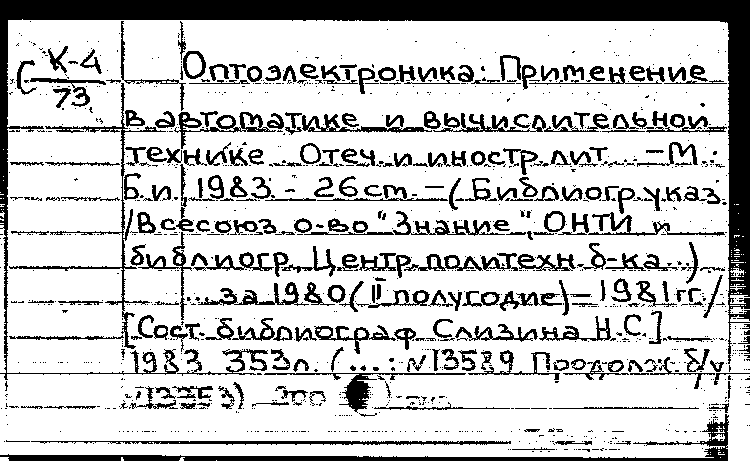 С К-4
73
Оптоэлектроника: Применение
в автоматике и вычислительной
технике. Отеч. и иностр. лит. ... – М.:
Б.и., 1983. - 26 ст. – (Библиогр. указ.
/Всесоюз. о-во "Знание", ОНТИ и
библиогр., Центр. политехн. б-ка...)
... за 1980 (II полугодие) – 1981 гг./
[Сост. библиограф Слизина Н.С.]
1983. 353л. (...; №13589. Продолж. б/у
№13353) 200 экз.